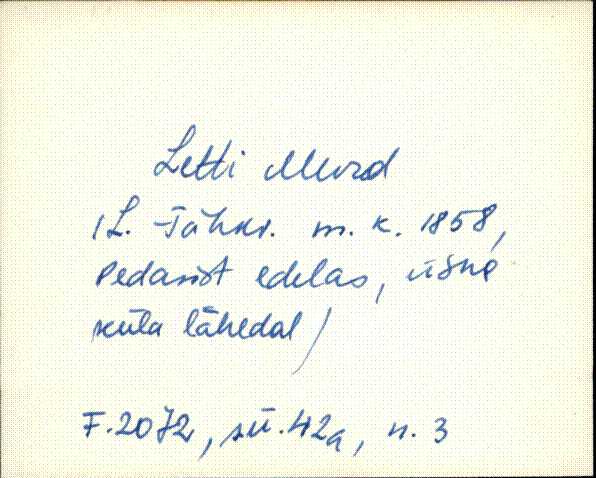 Letti Murd
(L.-Jähkr. m. k. 1858,
Pedasist edelas, üsna
küla lähedal)
F.2072, sü.42a, n. 3